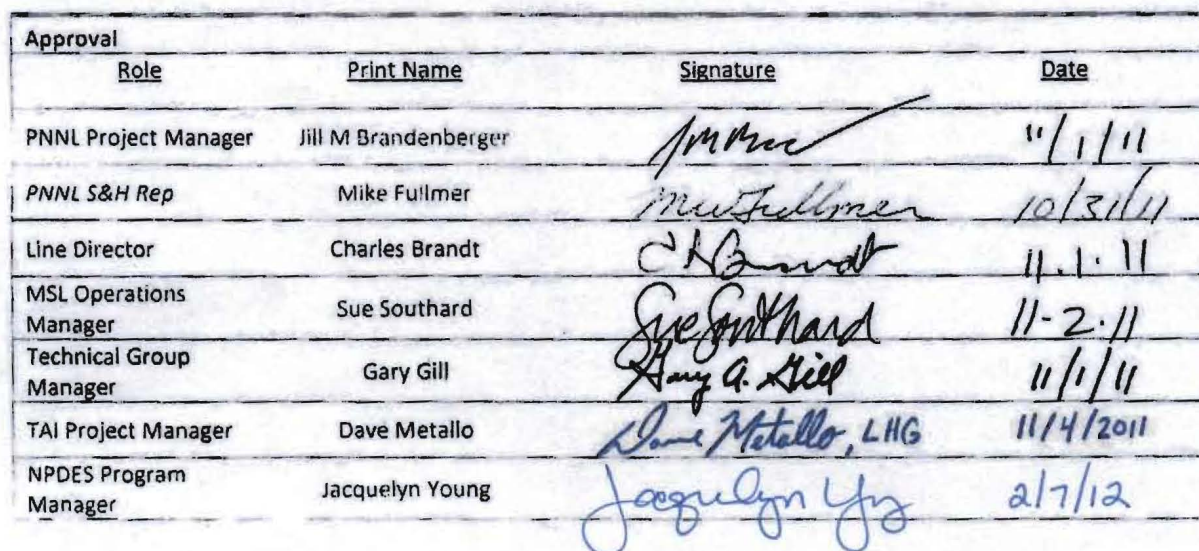 Approval
Role Print Name Signature Date
PNNL Project Manager Jill M Brandenberger 11/1/11
PNNL S&H Rep Mike Fullmer MWFullmer 10/31/11
Line Director Charles Brandt CABrandt 11.1.11
MSL Operations
Manager Sue Southard Sue Southard 11-2-11
Technical Group
Manager Gary Gill Gary A. Gill 11/1/11
TAI Project Manager Dave Metallo Dave Metallo, LHG 11/4/2011
NPDES Program
Manager Jacquelyn Young Jacquelyn Yg 2/7/12